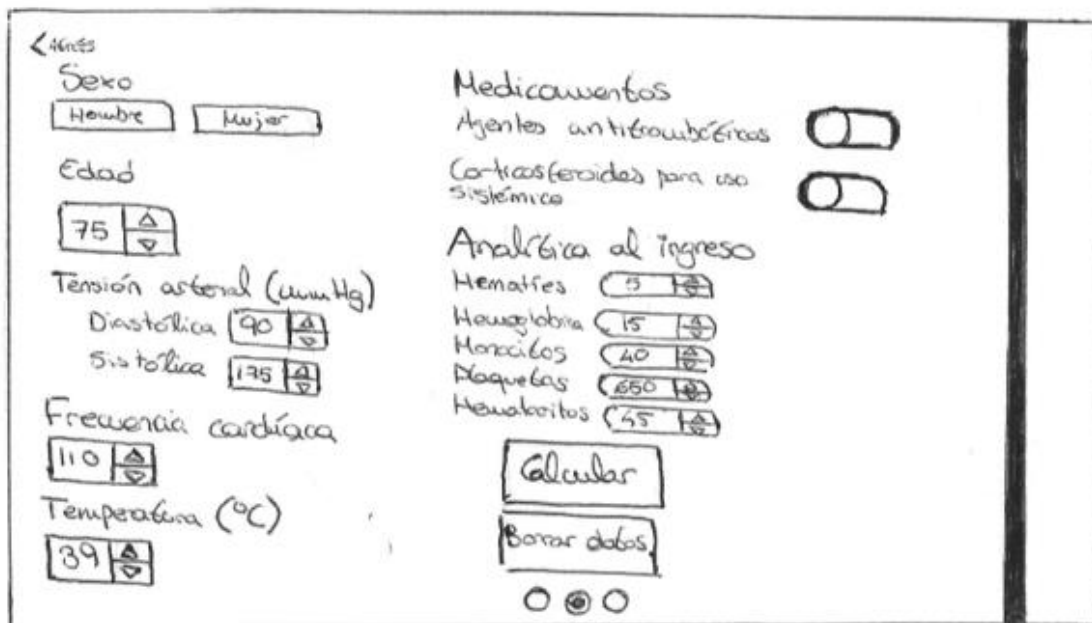 < Atrás
Sexo
Hombre Mujer
Edad
75
Tensión arterial (mmHg)
Diastólica 90
Sistólica 175
Frecuencia cardíaca
110
Temperatura (ºC)
39
Medicamentos
Agentes antitrombóticos
Corticosteroides para uso
sistémico
Analítica al ingreso
Hematíes 5
Hemoglobina 15
Monocitos 40
Plaquetas 650
Hematocritos 45
Calcular
Borrar datos